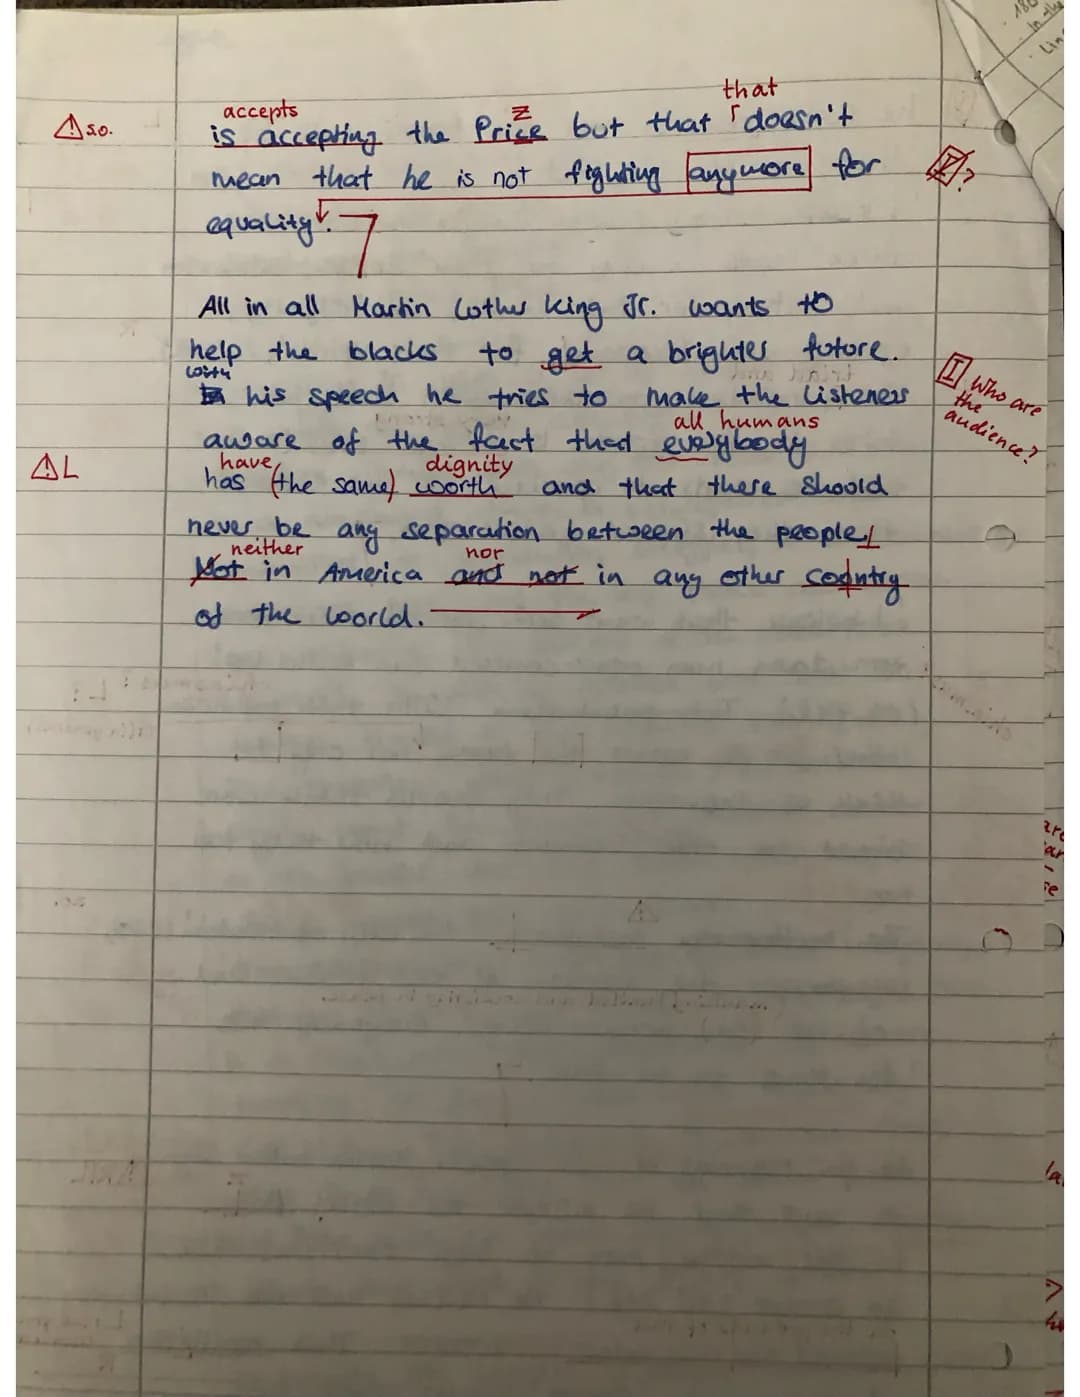 that
accepts
⚠ so. is accepting the Price but that ┌ doesn't
z
mean that he is not fighting anymore for
I?
equality.
All in all Martin Luther King Jr. wants to
help the blacks to get a brighter future.
I Who are the audience?
with
his speech he tries to make the listeners
all humans
aware of the fact that everybody
have dignity
⚠ L has (the same) worth and that there should
never be any separation between the people!
neither nor
Not in America and not in any other country
of the world.